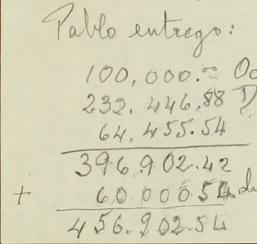 Pablo entrego:
100,000.=
232.446,88
64,455.54
396,902.42
+ 60000 54
456.902.54